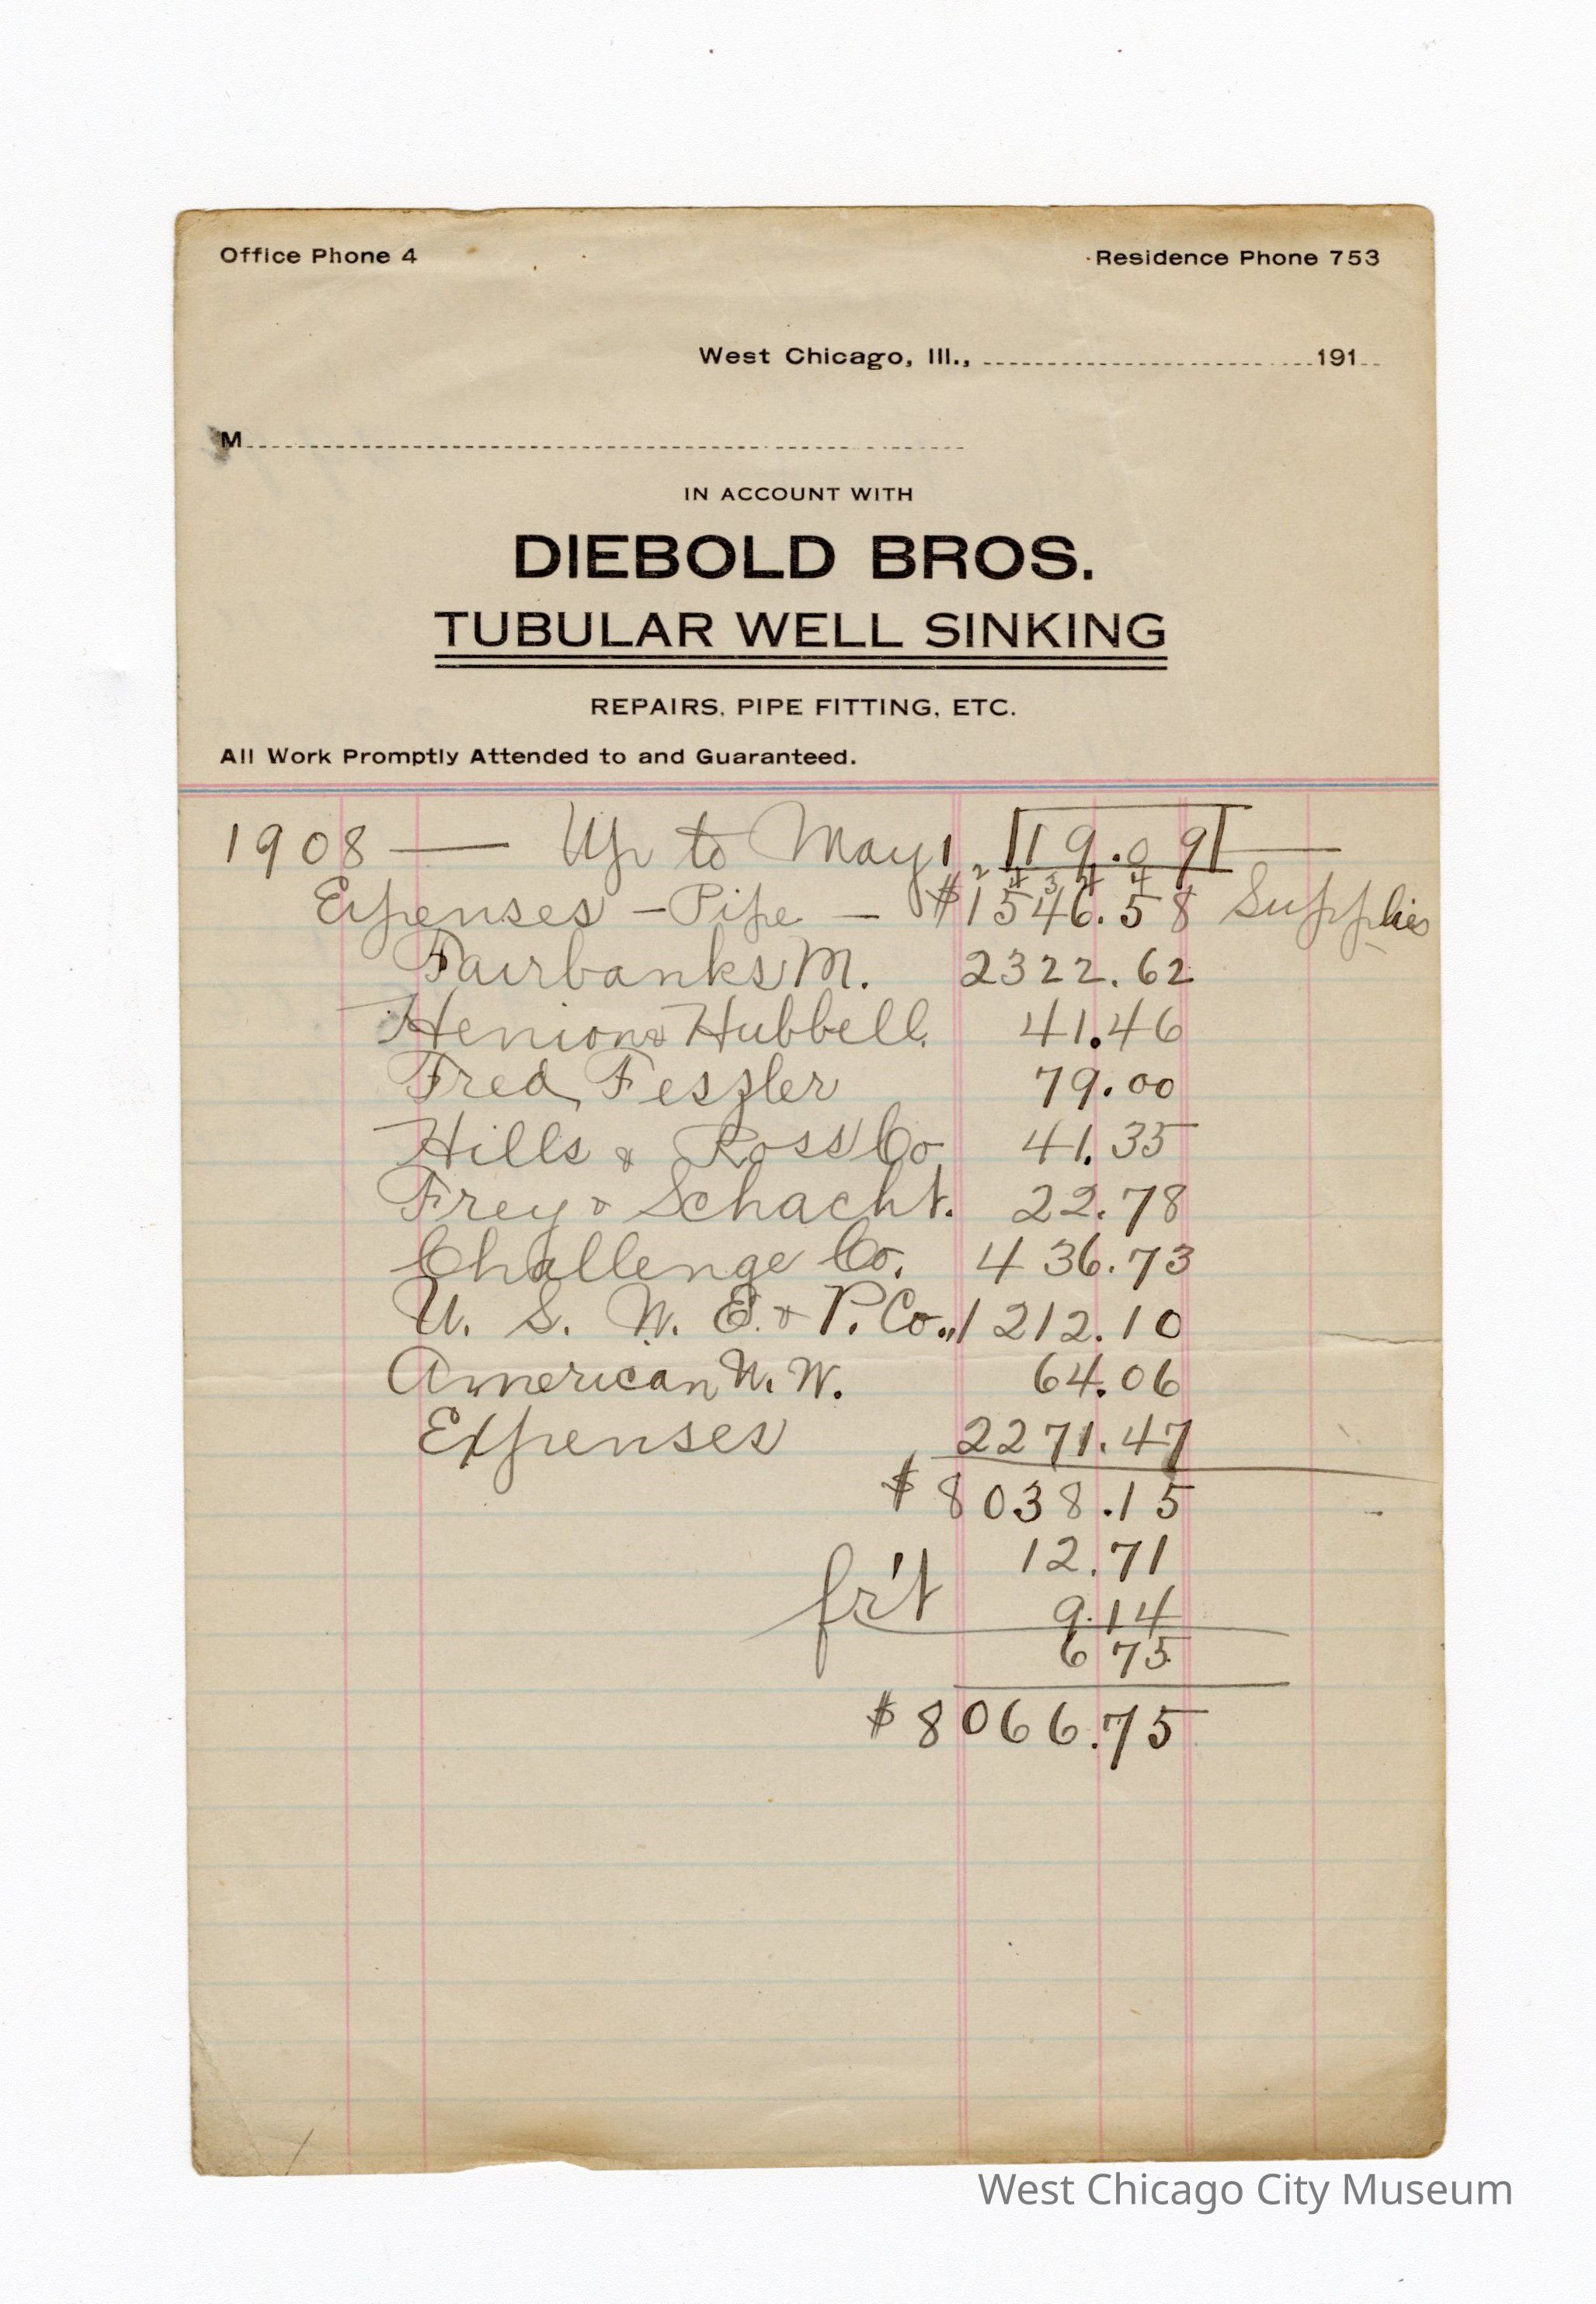 Office Phone 4 Residence Phone 753
West Chicago, Ill., 191
M
IN ACCOUNT WITH
DIEBOLD BROS.
TUBULAR WELL SINKING
REPAIRS, PIPE FITTING, ETC.
All Work Promptly Attended to and Guaranteed.
1908 — Up to May 1, 19.09 —
2 4 3 4 4
Expenses — Pipe — $1546.58 Supplies
Fairbanks M. 2322.62
Henion & Hubbell. 41.46
Fred Feszler 79.00
Hills & Ross Co. 41.35
Frey & Schacht. 22.78
Challenge Co. 436.73
U. S. W. E. & P. Co., 1212.10
American W. W. 64.06
Expenses 2271.47
$8038.15
12.71
fr't 9.14
6 75
$8066.75
West Chicago City Museum